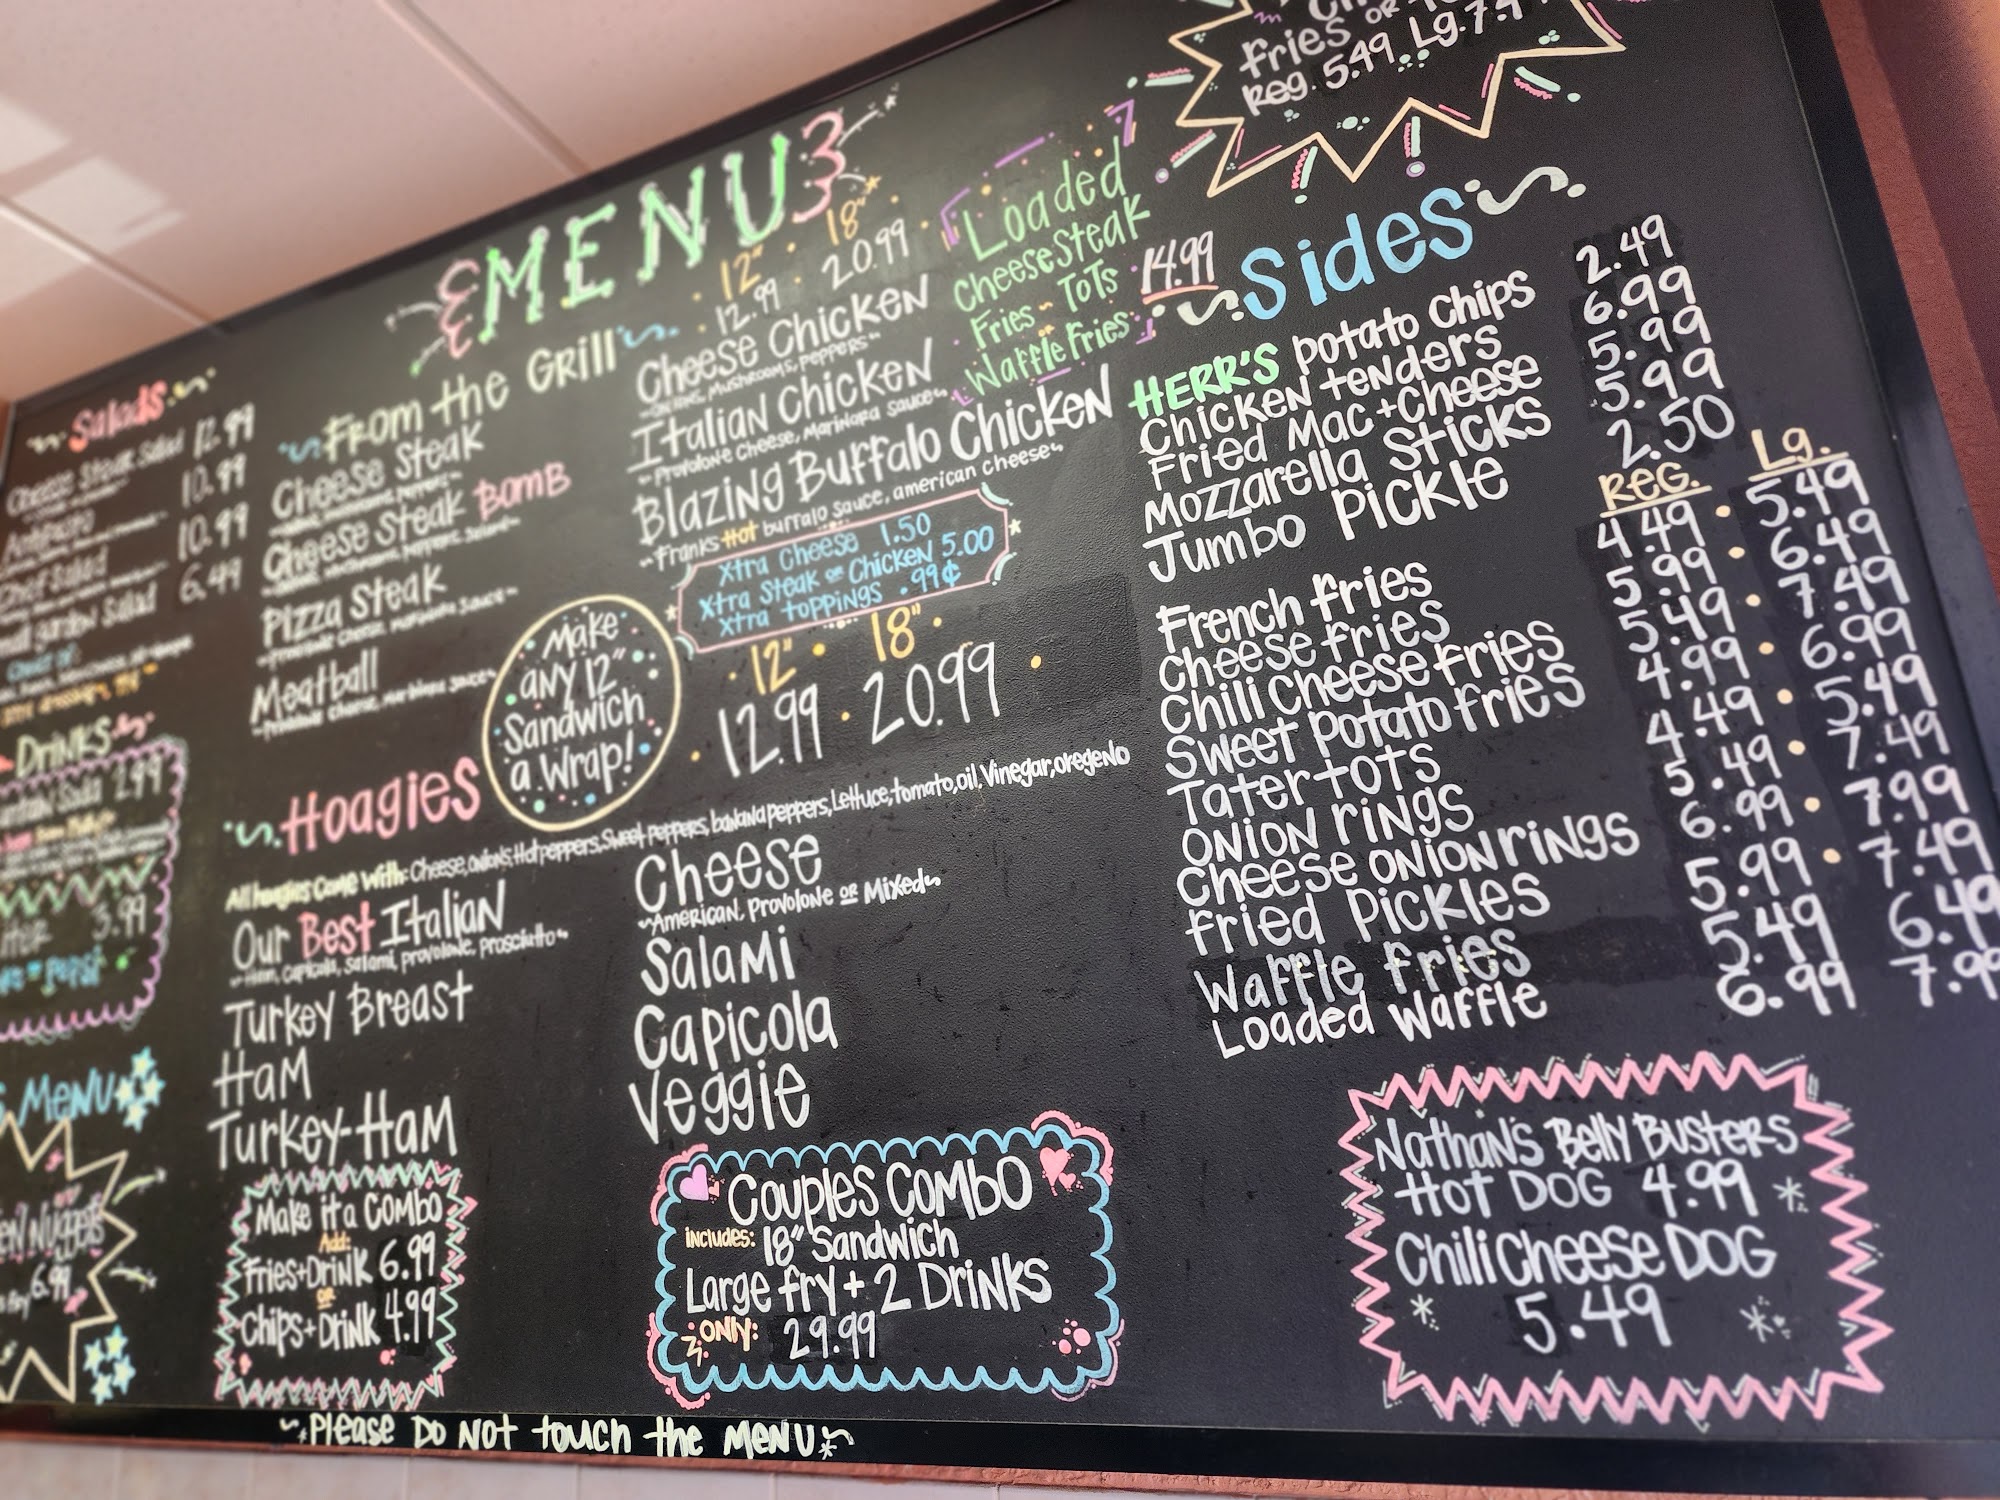 Fries or
Reg. 5.49 Lg. 7.49
MENU
Salads
Cheese Steak Salad 12.99
Antipasto 10.99
Chef Salad 10.99
garden Salad 6.49
Drinks
Soda 2.99
3.99
Pepsi
MENU
Nuggets
6.99
From the Grill
Cheese Steak
Cheese Steak Bomb
Pizza Steak
~Provolone Cheese, Marinara Sauce~
Meatball
~Provolone Cheese, Marinara Sauce~
12" • 18"
12.99 • 20.99
Cheese Chicken
~onions, Mushrooms, Peppers~
Italian Chicken
~Provolone Cheese, Marinara Sauce~
Blazing Buffalo Chicken
~Franks Hot buffalo sauce, american cheese~
Xtra Cheese 1.50
Xtra Steak or Chicken 5.00
Xtra toppings .99¢
Make
any 12"
Sandwich
a Wrap!
12" • 18"
12.99 • 20.99
Loaded
CheeseSteak
Fries - Tots 14.99
or
Waffle Fries
Hoagies
All hoagies Come With: Cheese, onions, Hot peppers, Sweet peppers, banana Peppers, Lettuce, tomato, oil, Vinegar, oregeno
Our Best Italian
~Ham, capicola, Salami, provolone, prosciutto~
Turkey Breast
Ham
Turkey-Ham
Cheese
~American, Provolone or Mixed~
Salami
Capicola
Veggie
Make it a Combo
Add:
Fries+Drink 6.99
or
Chips+Drink 4.99
Couples Combo
includes: 18" Sandwich
Large fry + 2 Drinks
only: 29.99
Sides
HERR'S Potato Chips 2.49
Chicken tenders 6.99
Fried Mac+Cheese 5.99
Mozzarella Sticks 5.99
Jumbo Pickle 2.50
Reg. Lg.
French fries 4.49 • 5.49
Cheese fries 5.99 • 6.49
Chili Cheese fries 5.49 • 7.49
Sweet Potato fries 4.99 • 6.99
Tater tots 4.49 • 5.49
Onion rings 5.49 • 7.49
Cheese onion rings 6.99 • 7.99
Fried Pickles 5.99 • 7.49
Waffle fries 5.49 6.49
Loaded Waffle 6.99 7.99
Nathan's Belly Busters
Hot Dog 4.99
Chili Cheese Dog
5.49
Please Do Not touch the Menu